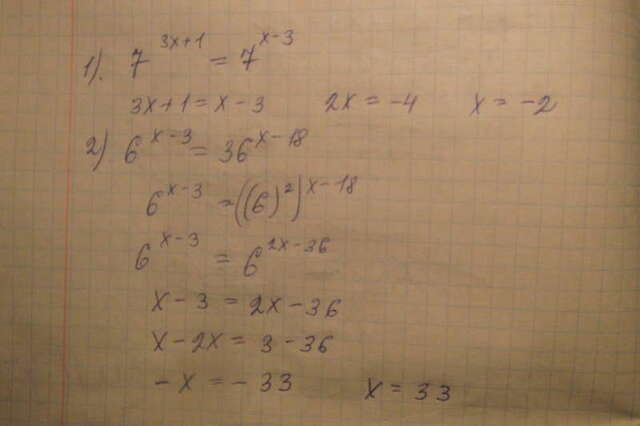 1). 7^(3x+1) = 7^(x-3)
3x+1 = x-3 2x = -4 x = -2
2) 6^(x-3) = 36^(x-18)
6^(x-3) = ((6)^2)^(x-18)
6^(x-3) = 6^(2x-36)
x-3 = 2x-36
x-2x = 3-36
-x = -33 x = 33